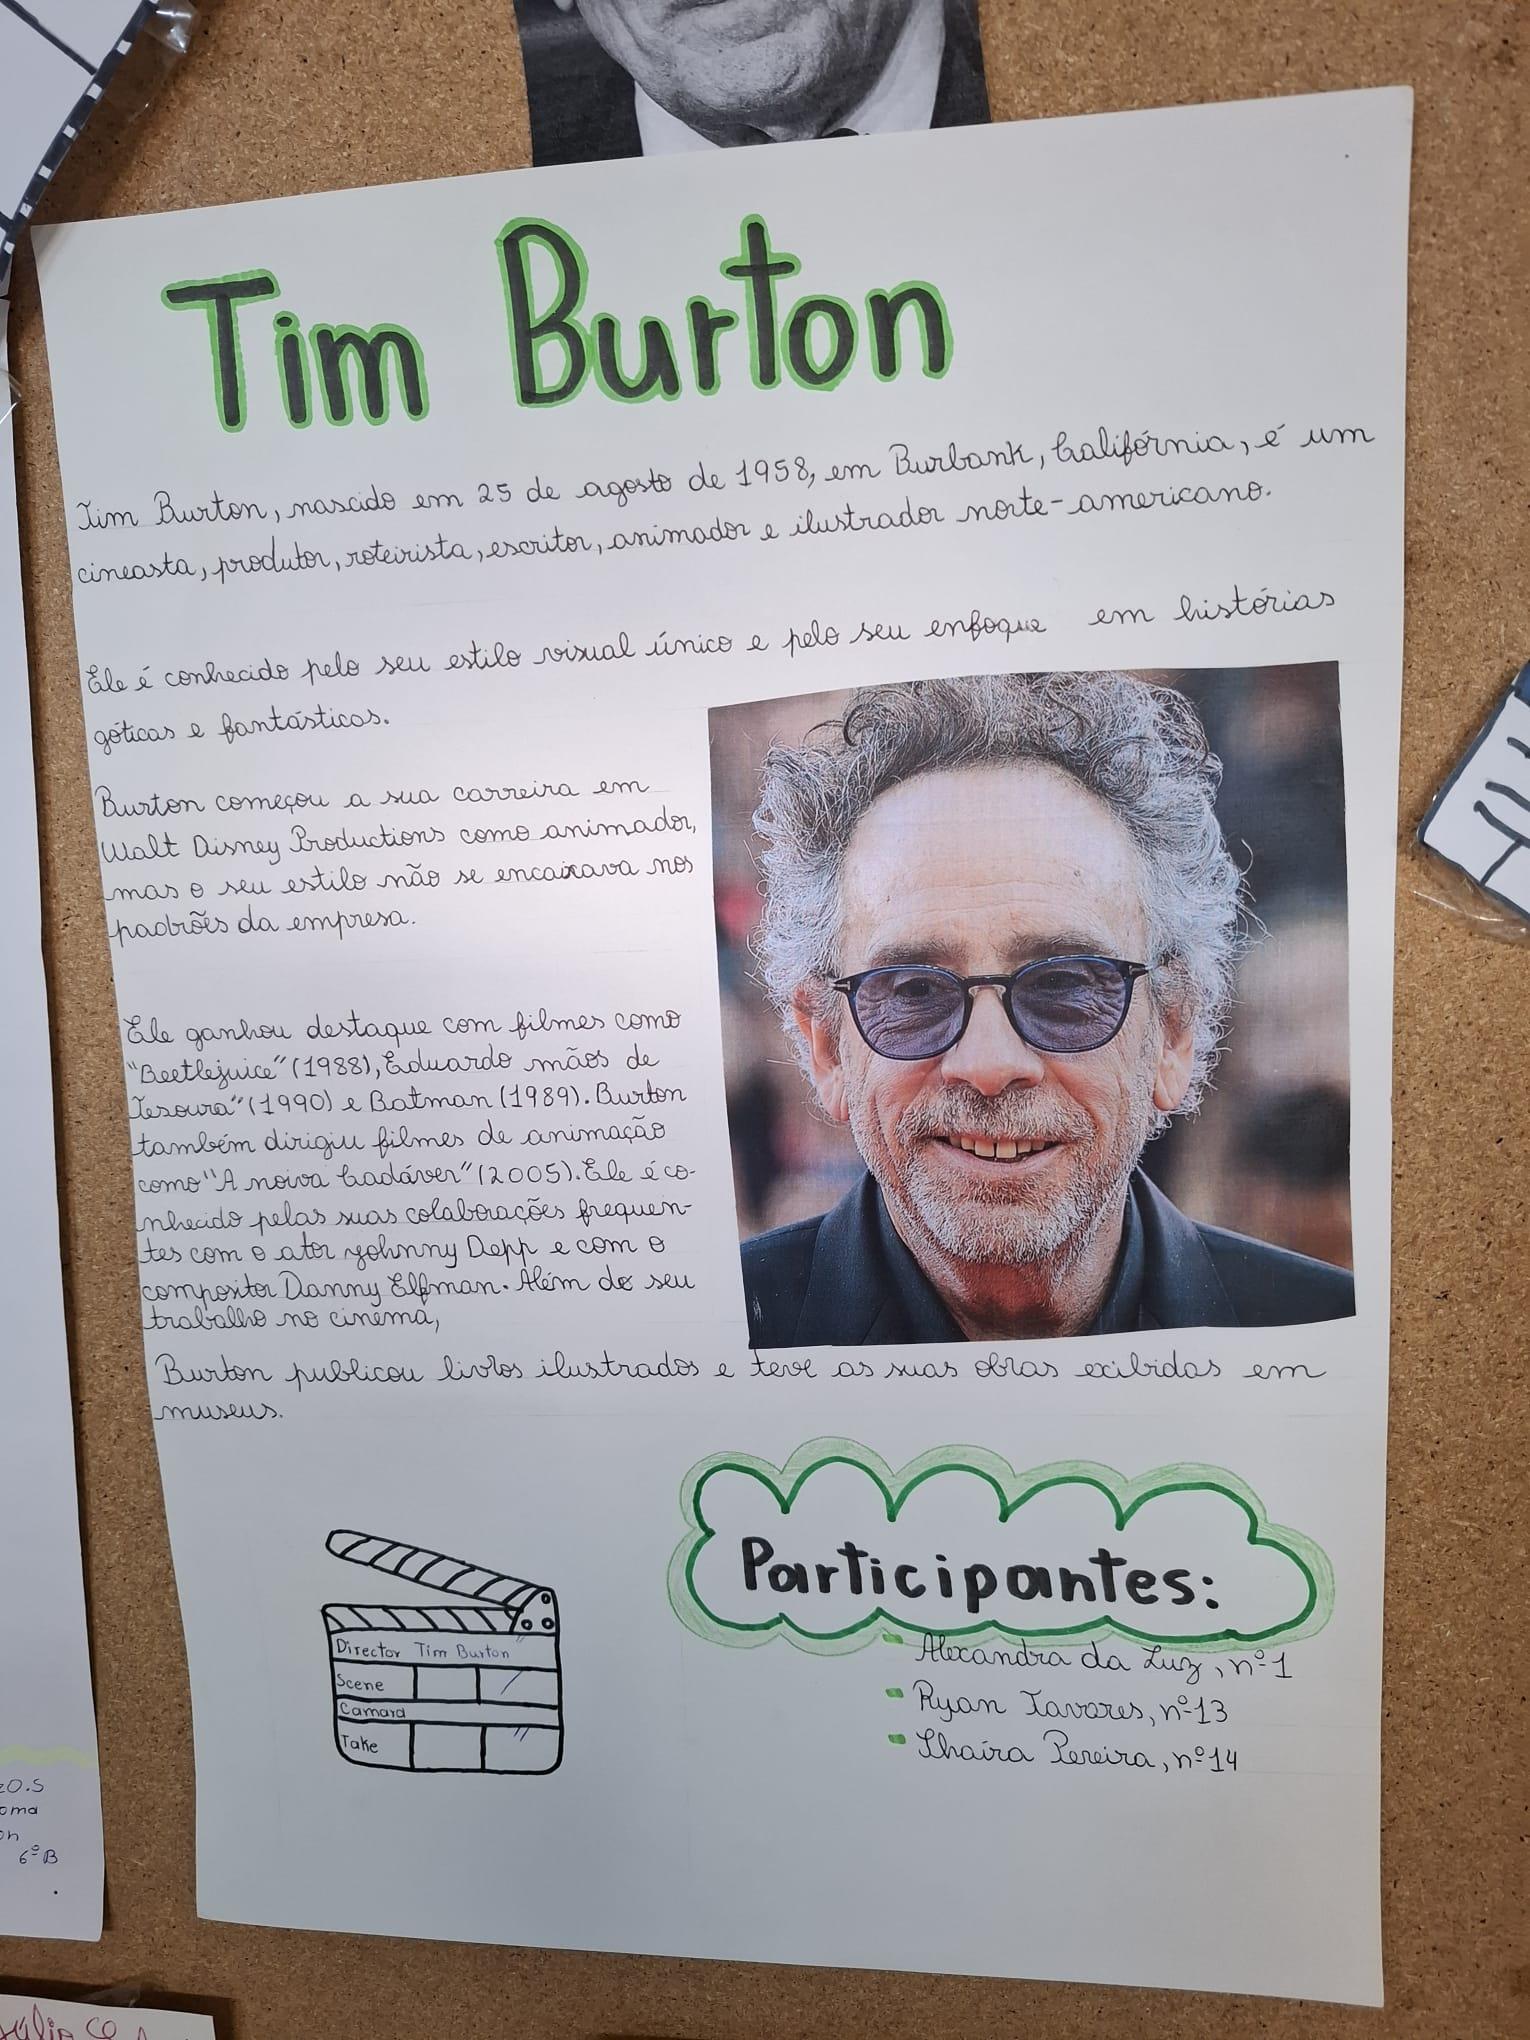 Tim Burton
Tim Burton, nascido em 25 de agosto de 1958, em Burbank, Califórnia, é um
cineasta, produtor, roteirista, escritor, animador e ilustrador norte-americano.
Ele é conhecido pelo seu estilo visual único e pelo seu enfoque em histórias
góticas e fantásticas.
Burton começou a sua carreira em
Walt Disney Productions como animador,
mas o seu estilo não se encaixava nos
padrões da empresa.
Ele ganhou destaque com filmes como
"Beetlejuice" (1988), Eduardo mãos de
Tesoura" (1990) e Batman (1989). Burton
também dirigiu filmes de animação
como "A noiva Cadáver" (2005). Ele é co-
nhecido pelas suas colaborações frequen-
tes com o ator Johnny Depp e com o
compositor Danny Elfman. Além do seu
trabalho no cinema,
Burton publicou livros ilustrados e teve as suas obras exibidas em
museus.
Director Tim Burton
Scene
Camara
Take
Participantes:
Alexandra da Luz, nº1
Ryan Tavares, nº13
Thaíra Pereira, nº14
6º B